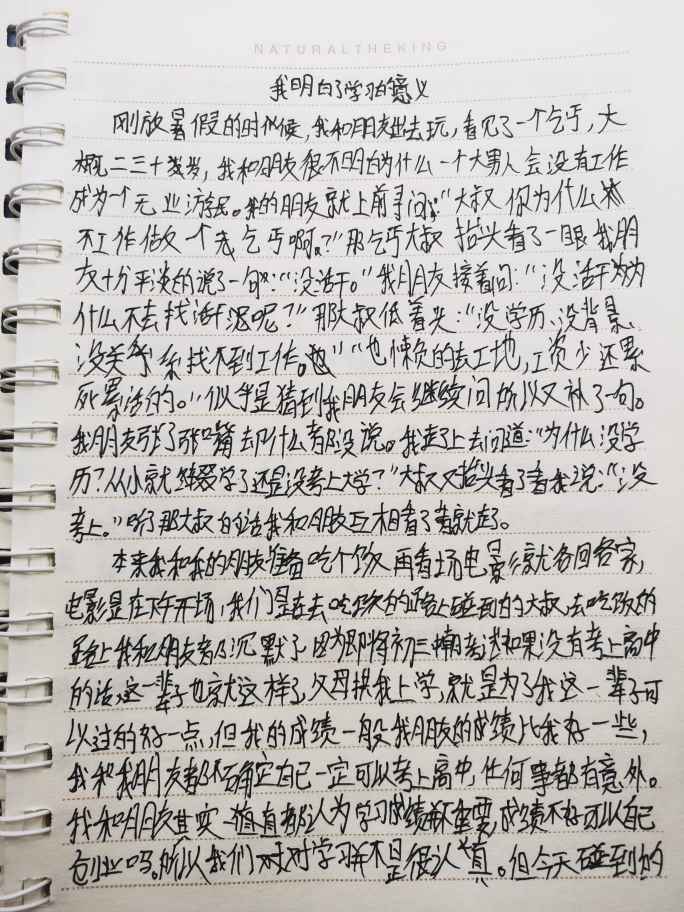 NATURALTHEKING
我明白了学习的意义
刚放暑假的时候,我和朋友出去玩,看见了一个乞丐,大
概二三十岁,我和朋友很不明白为什么一个大男人会没有工作
成为一个无业游民。我的朋友就上前寻问:“大叔你为什么
不工作做一个乞丐啊?”那乞丐大叔抬头看了一眼我朋
友十分平淡的说了一句:“没活干。”我朋友接着问:“没活干为
什么不去找活干呢?”那大叔低着头:“没学历、没背景、
没关系找不到工作。”“也懒的去工地,工资少还累
死累活的。”似乎是猜到我朋友会继续问所以又补了一句。
我朋友张了张嘴却什么都没说。我走了上去问道:“为什么没学
历?从小就辍学了还是没考上大学?”大叔又抬头看了看我说:“没
考上。”听了那大叔的话我和朋友互相看了看就走了。
本来我和我的朋友准备吃个饭再看场电影就各回各家,
电影是在下午开场,我们是在去吃饭的路上碰到的大叔,去吃饭的
路上我和朋友都沉默了因为即将初三期考试如果没有考上高中
的话,这一辈子也就这样了,父母供我上学,就是为了我这一辈子可
以过的好一点,但我的成绩一般我朋友的成绩比我好一些,
我和我朋友都不确定自己一定可以考上高中,任何事都有意外。
我和朋友其实一直都认为学习成绩不重要,成绩不好可以自己
创业吗。所以我们对学习并不是很认真。但今天碰到的